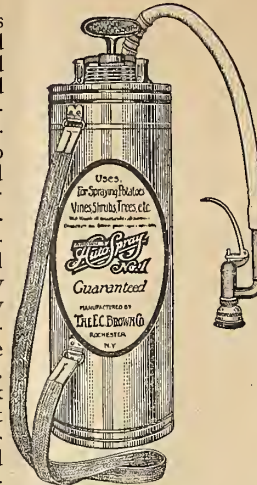 Uses.
For Spraying Potatoes
Vines, Shrubs, Trees, etc.
Auto Spray
No. 1
Guaranteed
MANUFACTURED BY
THE E.C. BROWN CO
ROCHESTER
N.Y